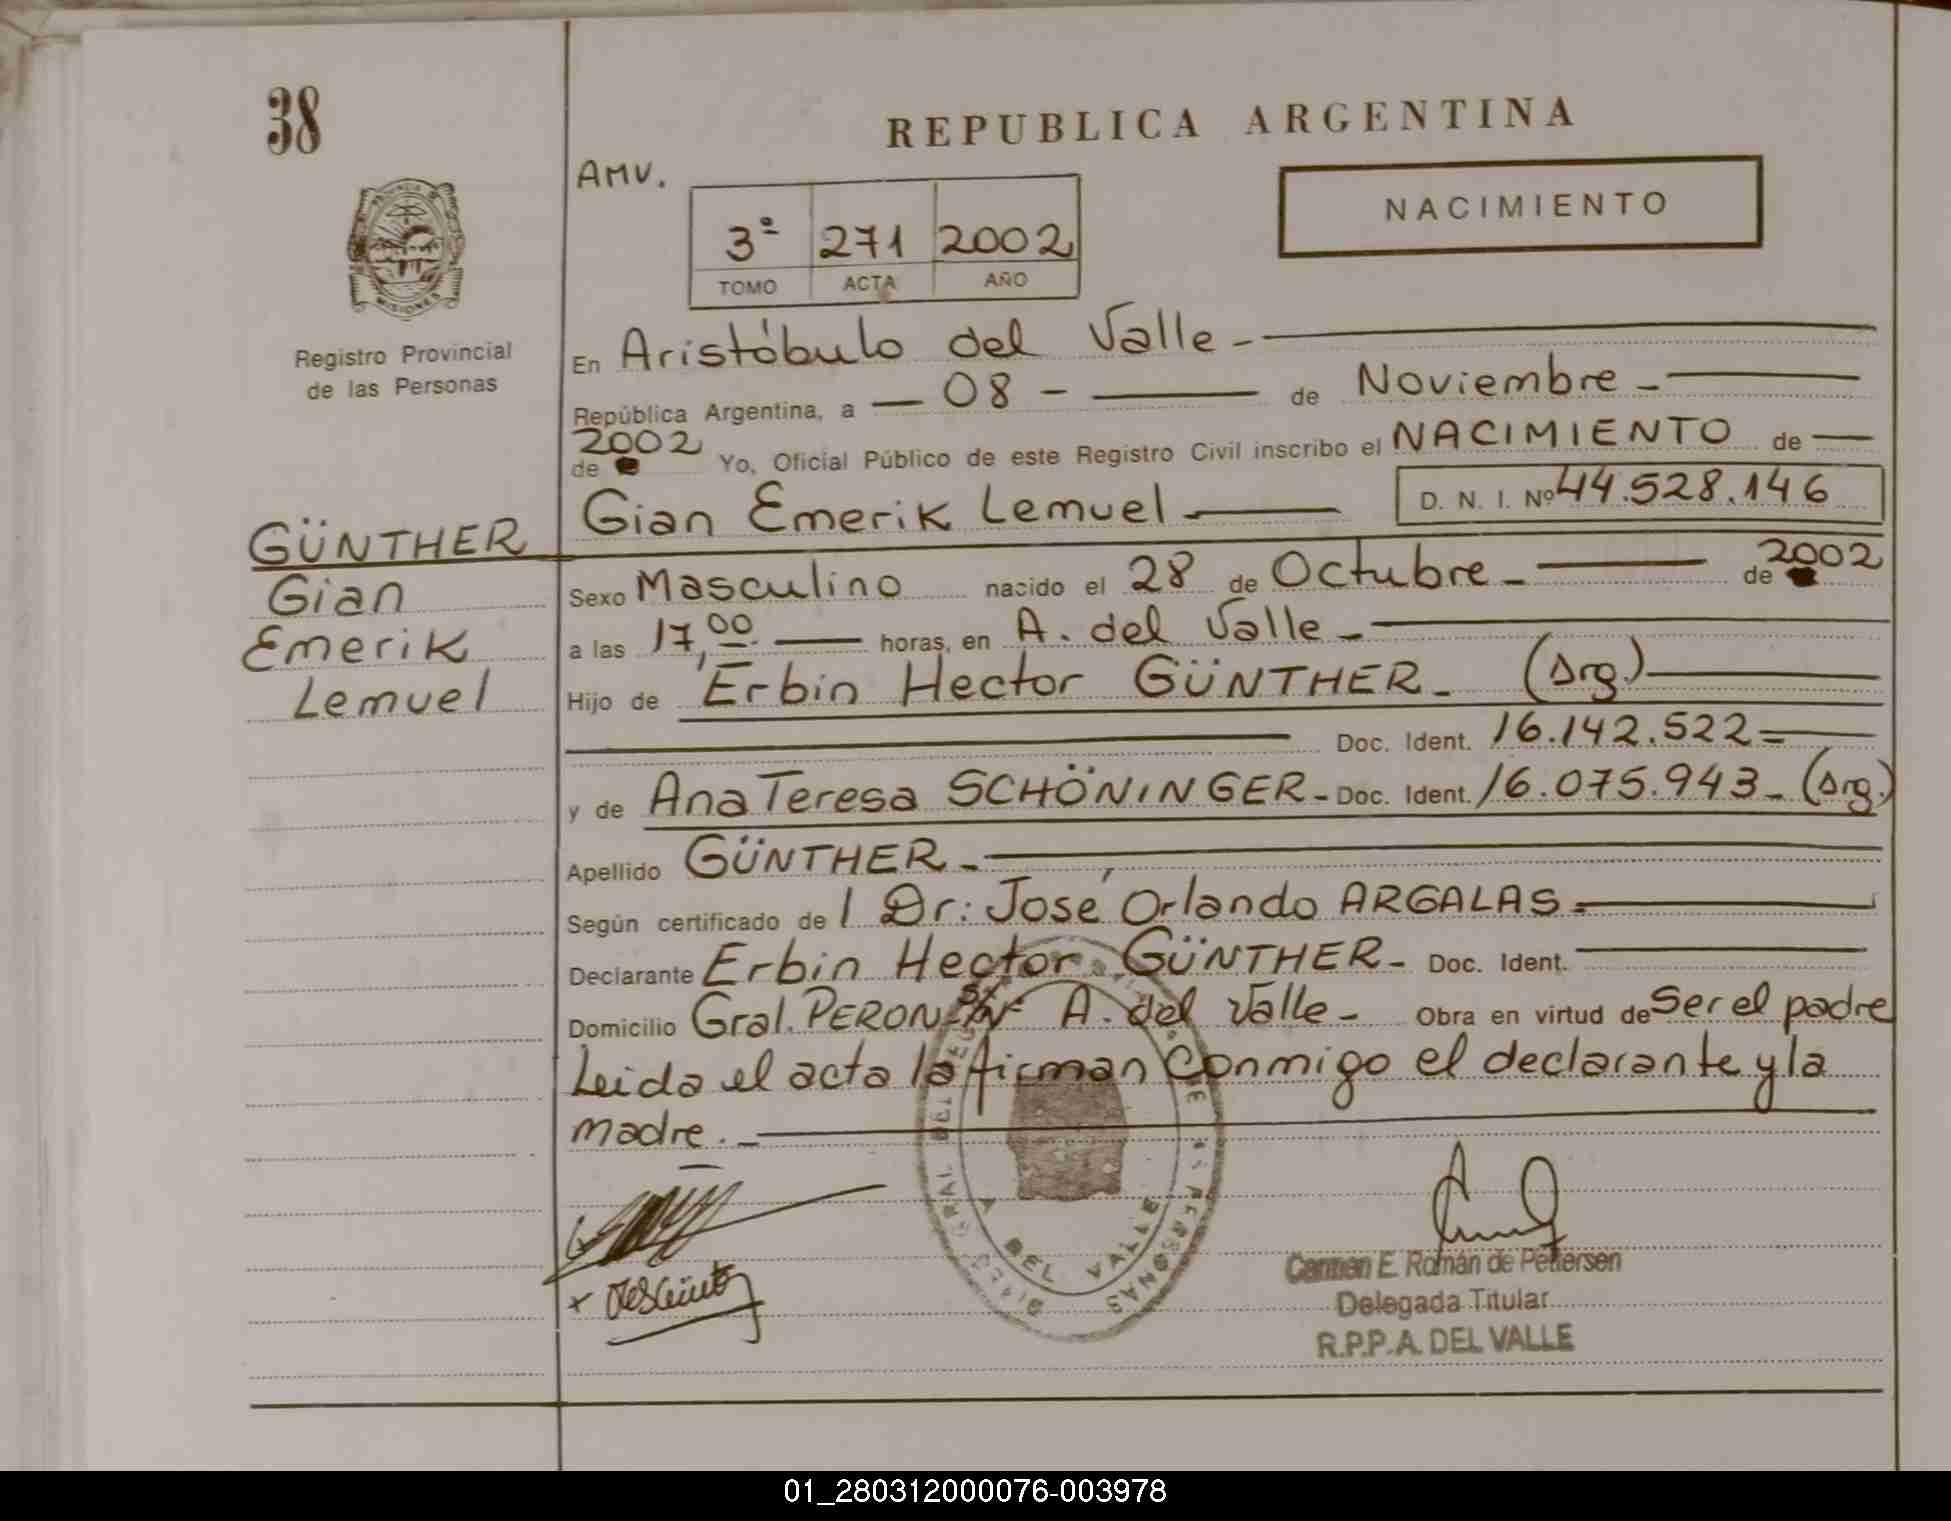 38
REPUBLICA ARGENTINA
AMV.
NACIMIENTO
3º 271 2002
TOMO ACTA AÑO
PROVINCIA DE
MISIONES
Registro Provincial
de las Personas
En Aristóbulo del Valle -
República Argentina, a - 08 - de Noviembre -
de 2002 Yo, Oficial Público de este Registro Civil inscribo el NACIMIENTO de
Gian Emerik Lemuel D. N. I. Nº 44.528.146
GÜNTHER
Gian
Emerik
Lemuel
Sexo Masculino nacido el 28 de Octubre - de 2002
a las 17,00 horas, en A. del Valle -
Hijo de Erbin Hector GÜNTHER - (Arg.)
Doc. Ident. 16.142.522 =
y de Ana Teresa SCHÖNINGER - Doc. Ident. 16.075.943 - (Arg.)
Apellido GÜNTHER -
Según certificado de l Dr: José Orlando ARGALAS -
Declarante Erbin Hector GÜNTHER - Doc. Ident.
Domicilio Gral. PERON S/Nº A. del Valle - Obra en virtud de Ser el padre
Leida el acta la firman conmigo el declarante y la
madre. -
A DEL VALLE
PERSONAS
Carmen E. Román de Pettersen
Delegada Titular
R.P.P.A. DEL VALLE
01_280312000076-003978